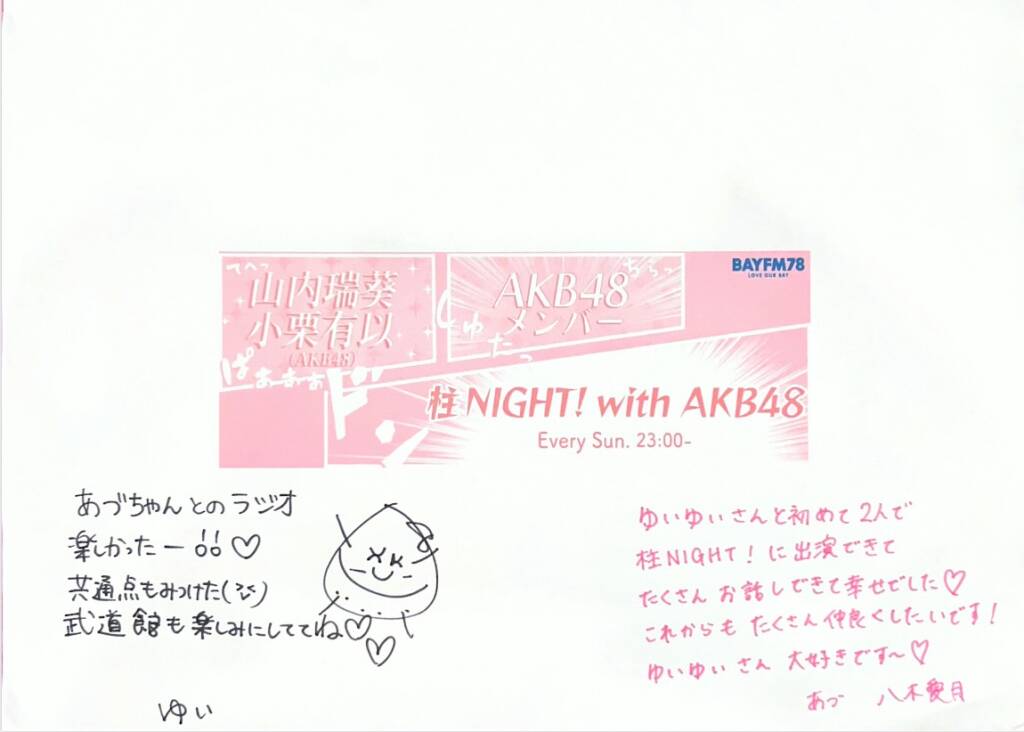 てへっ
山内瑞葵
小栗有以
(AKB48)
AKB48
メンバー
ちらっ
BAYFM78
LOVE OUR BAY
しゅたっ
ぱぁぁぁ
柱NIGHT! with AKB48
Every Sun. 23:00-
あづちゃんとのラジオ
楽しかったー!!♡
共通点もみつけた
武道館も楽しみにしててね♡♡
ゆい
ゆいゆいさんと初めて2人で
柱NIGHT!に出演できて
たくさんお話しできて幸せでした♡
これからもたくさん仲良くしたいです!
ゆいゆいさん 大好きです〜♡
あづ 八木愛月